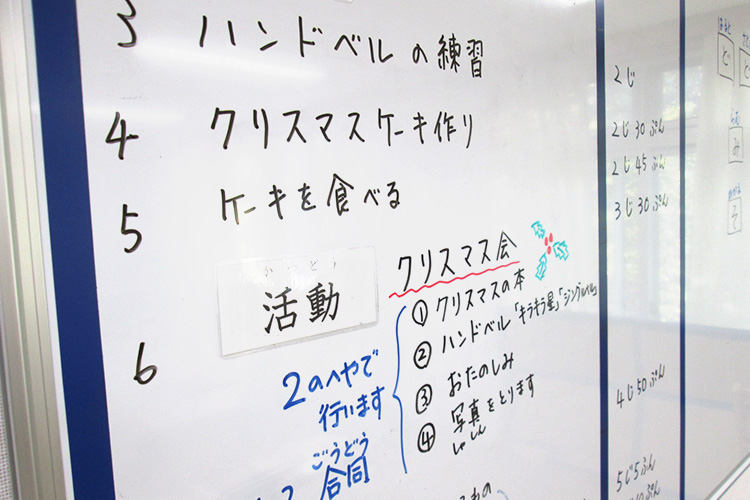 3 ハンドベルの練習
2じ
4 クリスマスケーキ作り
2じ30ぷん
2じ45ぷん
5 ケーキを食べる
3じ30ぷん
かつどう
活動
クリスマス会
① クリスマスの本
② ハンドベル「キラキラ星」「ジングルベル」
③ おたのしみ
④ 写真をとります
しゃしん
6
2のへやで
行います
ごうどう
合同
4じ50ぷん
5じ5ふん
ど
み
そ